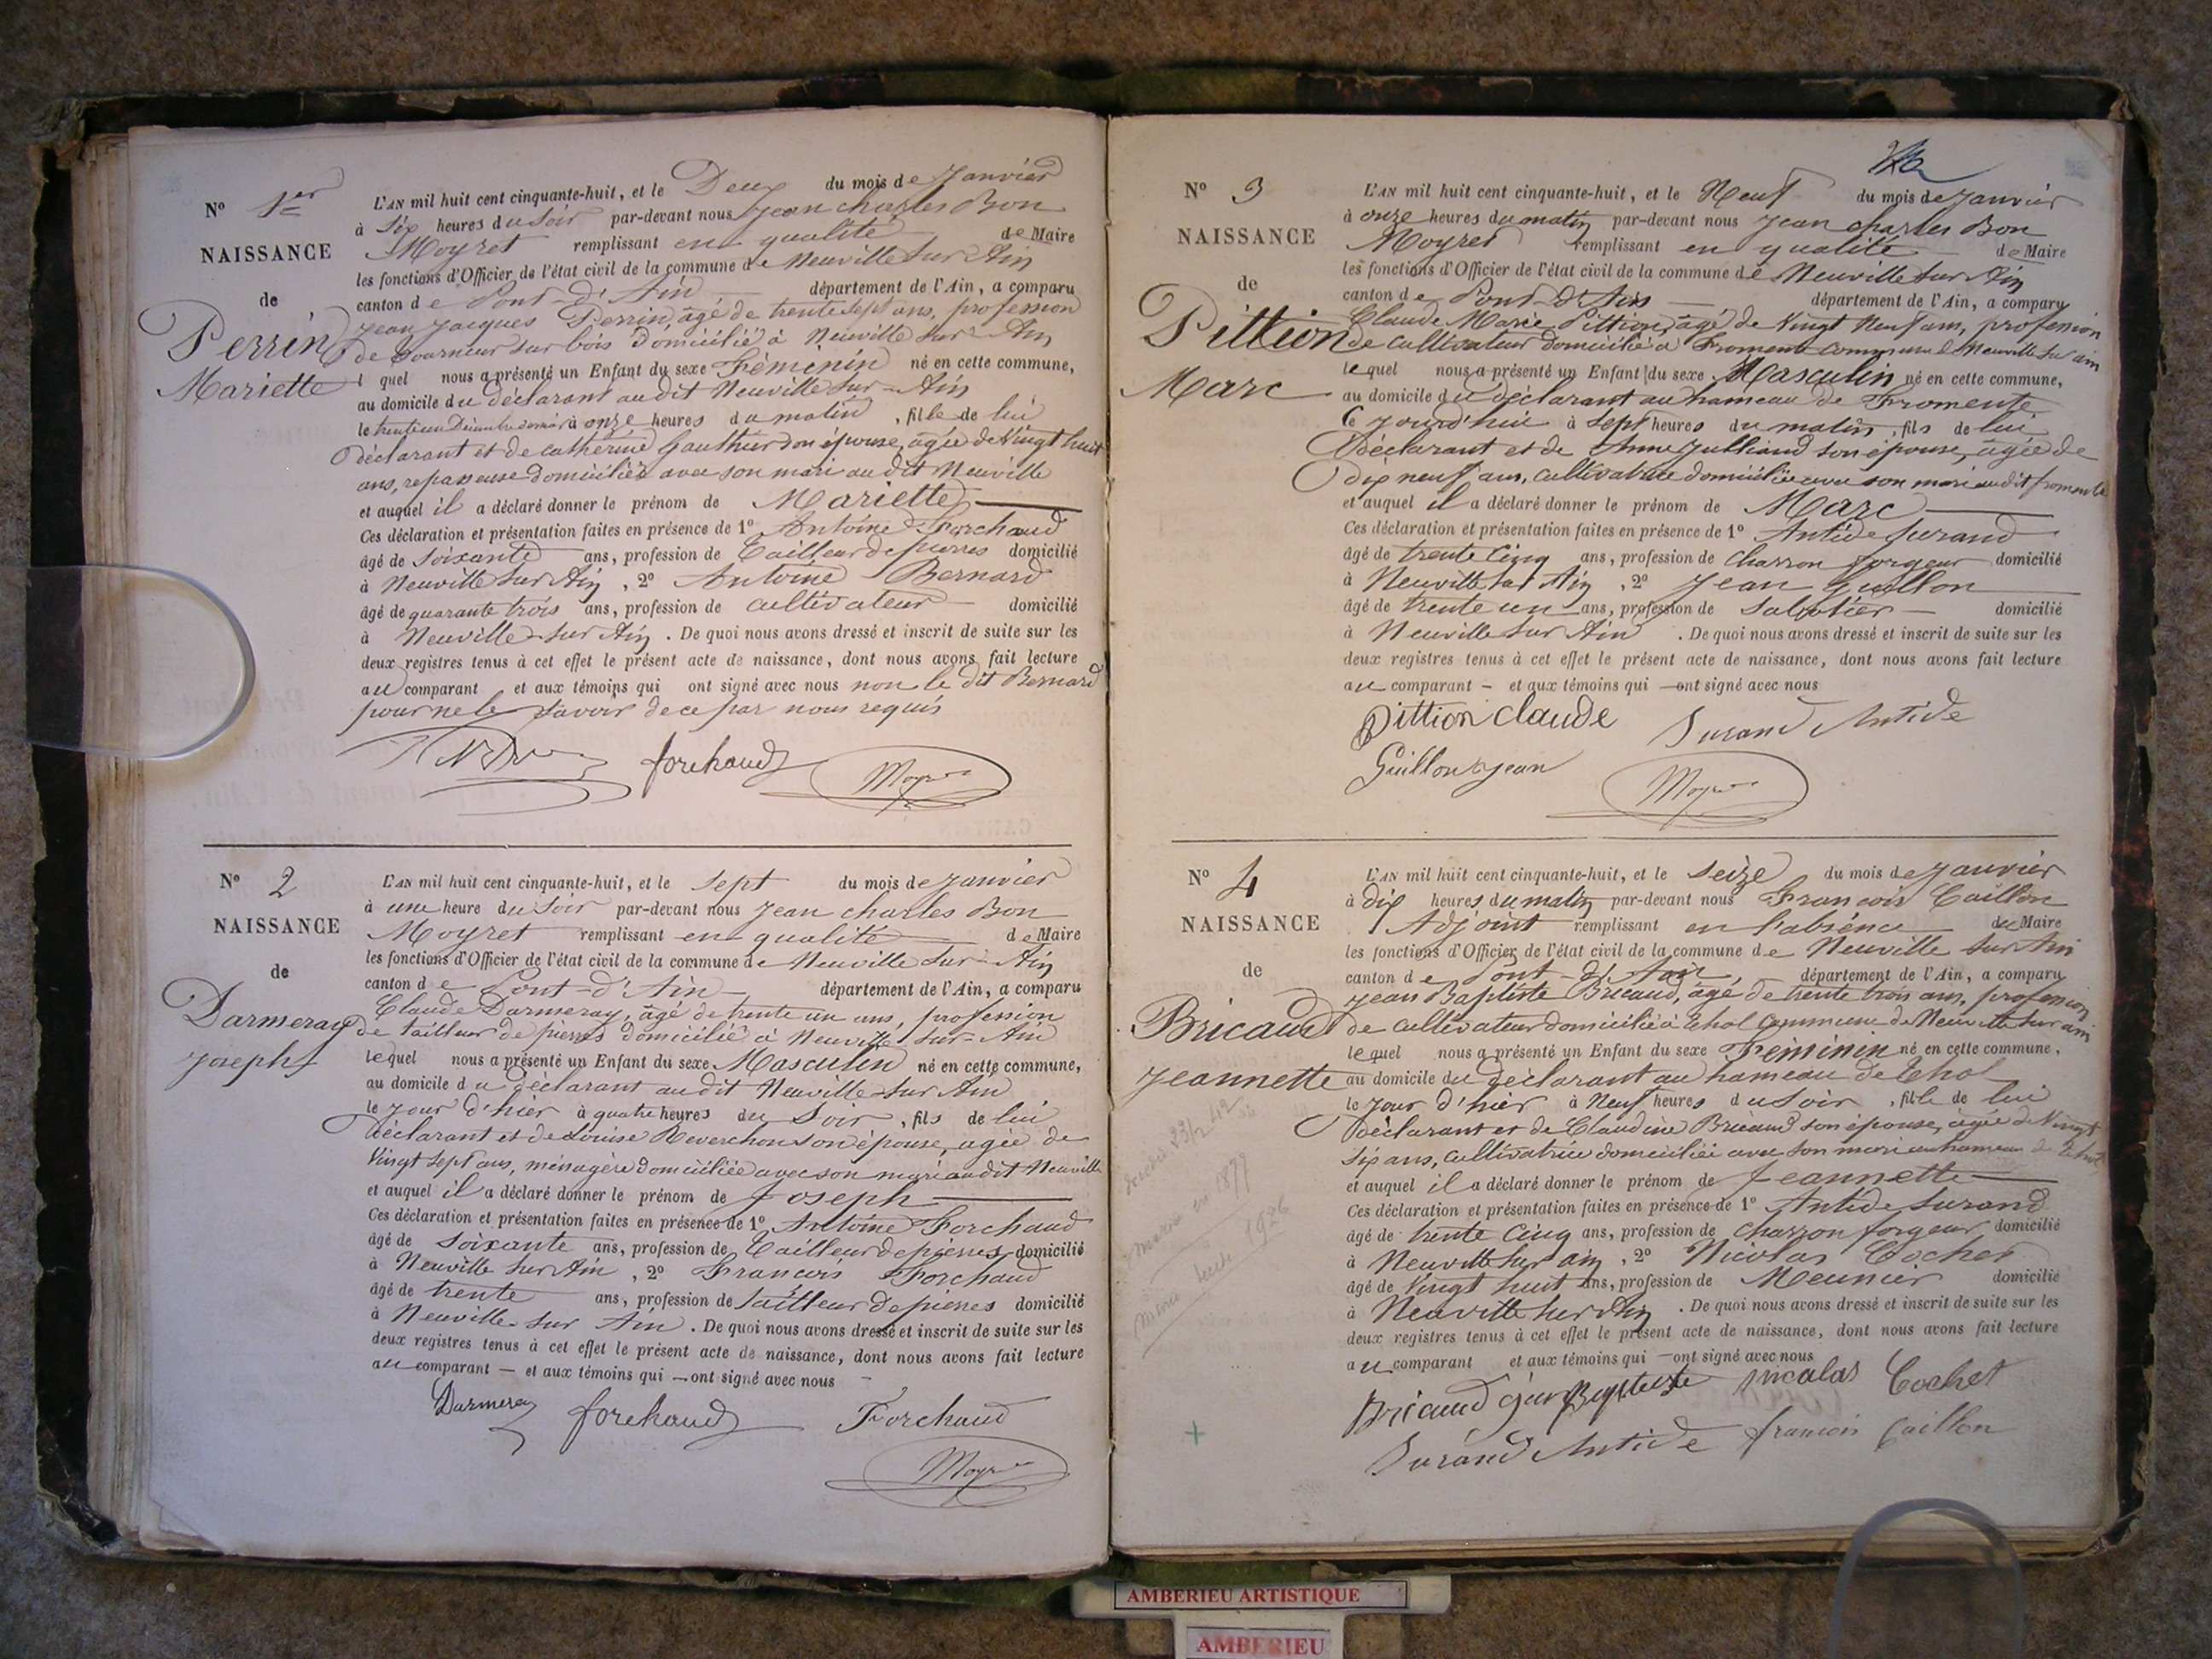 N° 1er
NAISSANCE
de
Perrin
Mariette
L'AN mil huit cent cinquante-huit, et le Deux du mois de Janvier
à Six heures du Soir par-devant nous Jean charles Bon
Moyret remplissant en qualité de Maire
les fonctions d'Officier de l'état civil de la commune de Neuville sur Ain
canton de Pont-d'Ain département de l'Ain, a comparu
Jean Jacques Perrin, agé de trente sept ans, profession
de tourneur sur bois domicilié à Neuville sur Ain
l quel nous a présenté un Enfant du sexe Féminin né en cette commune,
au domicile du déclarant au dit Neuville sur-Ain
le trente un Décembre dernier à onze heures du matin, fille de lui
déclarant et de catherine Gauthier son épouse, agée de Vingt huit
ans, repasseuse domiciliée avec son mari au dit Neuville
et auquel il a déclaré donner le prénom de Mariette
Ces déclaration et présentation faites en présence de 1° Antoine Forchaud
âgé de Soixante ans, profession de Tailleur de pierres domicilié
à Neuville sur Ain, 2° Antoine Bernard
âgé de quarante trois ans, profession de cultivateur domicilié
à Neuville sur Ain. De quoi nous avons dressé et inscrit de suite sur les
deux registres tenus à cet effet le présent acte de naissance, dont nous avons fait lecture
au comparant et aux témoins qui ont signé avec nous non le dit Bernard
pour ne le savoir de ce par nous requis
forchaud Moyret
N° 2
NAISSANCE
de
Darmeray
Joseph
L'AN mil huit cent cinquante-huit, et le Sept du mois de Janvier
à une heure du Soir par-devant nous Jean charles Bon
Moyret remplissant en qualité de Maire
les fonctions d'Officier de l'état civil de la commune de Neuville sur Ain
canton de Pont-d'Ain département de l'Ain, a comparu
Claude Darmeray, agé de trente un ans, profession
de tailleur de pierres domicilié à Neuville sur-Ain
lequel nous a présenté un Enfant du sexe Masculin né en cette commune,
au domicile du déclarant au dit Neuville sur Ain
le Jour d'hier à quatre heures du Soir, fils de lui
déclarant et de Louise Reverchon son épouse, agée de
Vingt sept ans, ménagère domiciliée avec son mari au dit Neuville
et auquel il a déclaré donner le prénom de Joseph
Ces déclaration et présentation faites en présence de 1° Antoine Forchaud
âgé de Soixante ans, profession de Tailleur de pierres domicilié
à Neuville sur Ain, 2° François Forchaud
âgé de trente ans, profession de Tailleur de pierres domicilié
à Neuville sur Ain. De quoi nous avons dressé et inscrit de suite sur les
deux registres tenus à cet effet le présent acte de naissance, dont nous avons fait lecture
au comparant — et aux témoins qui — ont signé avec nous
Darmeray forchaud Forchaud
Moyret
N° 3
NAISSANCE
de
Pittion
Marc
L'AN mil huit cent cinquante-huit, et le Neuf du mois de Janvier
à onze heures du matin par-devant nous Jean charles Bon
Moyret remplissant en qualité de Maire
les fonctions d'Officier de l'état civil de la commune de Neuville sur Ain
canton de Pont-d'Ain département de l'Ain, a comparu
Claude Marie Pittion, agé de Vingt Neuf ans, profession
de cultivateur domicilié à Fromente commune de Neuville sur ain
lequel nous a présenté un Enfant du sexe Masculin né en cette commune,
au domicile du déclarant au hameau de Fromente
Ce Jourd'hui à Sept heures du matin, fils de lui
Déclarant et de Anne Julliand son épouse, agée de
dix neuf ans, cultivatrice domiciliée avec son mari au dit fromente
et auquel il a déclaré donner le prénom de Marc
Ces déclaration et présentation faites en présence de 1° Antide Surand
âgé de trente Cinq ans, profession de Charron forgeur domicilié
à Neuville sur Ain, 2° Jean Guillon
âgé de trente un ans, profession de Sabotier domicilié
à Neuville sur Ain. De quoi nous avons dressé et inscrit de suite sur les
deux registres tenus à cet effet le présent acte de naissance, dont nous avons fait lecture
au comparant — et aux témoins qui — ont signé avec nous
Pittion Claude Surand Antide
Guillon jean Moyret
N° 4
NAISSANCE
de
Bricaud
Jeannette
L'AN mil huit cent cinquante-huit, et le Seize du mois de Janvier
à dix heures du matin par-devant nous François Caillon
Adjoint remplissant en l'absence du Maire
les fonctions d'Officier de l'état civil de la commune de Neuville sur Ain
canton de Pont-d'Ain, département de l'Ain, a comparu
Jean Baptiste Bricaud, agé de trente trois ans, profession
de cultivateur domicilié à Thol commune de Neuville sur ain
lequel nous a présenté un Enfant du sexe Féminin né en cette commune,
au domicile du déclarant au hameau de Thol
le Jour d'hier à Neuf heures du Soir, fille de lui
déclarant et de Claudine Bricaud son épouse, agée de Vingt
Six ans, cultivatrice domiciliée avec son mari au hameau de Thol
et auquel il a déclaré donner le prénom de Jeannette
Ces déclaration et présentation faites en présence de 1° Antide Surand
âgé de trente Cinq ans, profession de Charron forgeur domicilié
à Neuville sur ain, 2° Nicolas Cochet
âgé de Vingt huit ans, profession de Meunier domicilié
à Neuville sur Ain. De quoi nous avons dressé et inscrit de suite sur les
deux registres tenus à cet effet le présent acte de naissance, dont nous avons fait lecture
au comparant et aux témoins qui — ont signé avec nous
Bricaud jean Baptiste nicolas Cochet
Surand Antide francois Caillon
AMBERIEU ARTISTIQUE
AMBERIEU